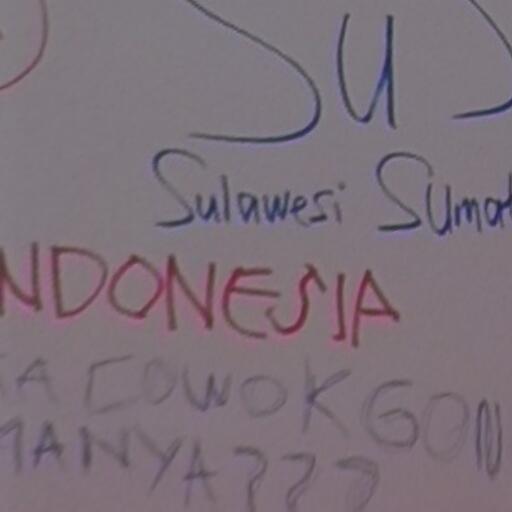 SU S
Sulawesi Sumat
NDONESIA
A COWOK GON
MANYA???